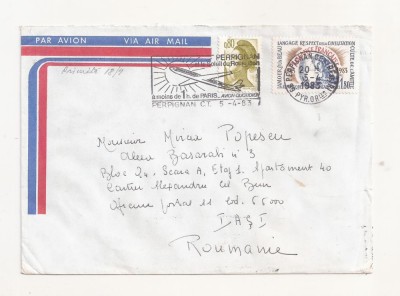 PAR AVION VIA AIR MAIL
0,80
PERPIGNAN
à moins de 1 h. de PARIS... AVION QUOTIDIEN
PERPIGNAN CT. 5-4-83
LANGAGE RESPECT CIVILISATION
PERPIGNAN
20 H
5-4
1983
PYR. ORIENT.
1,80
Monsieur Mircea Popescu
Aleea Basarabi n° 3
Bloc Scara A, Etaj 1. Apartament 40
Cartier Alexandru cel Bun
Oficiul postal 11 cod. 6600
IAŞI
Roumanie